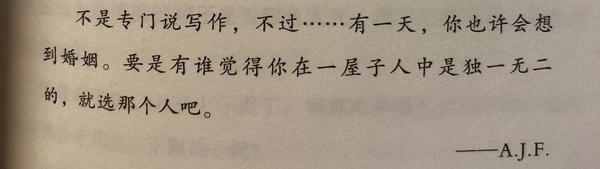 不是专门说写作，不过……有一天，你也许会想
到婚姻。要是有谁觉得你在一屋子人中是独一无二
的，就选那个人吧。
——A.J.F.